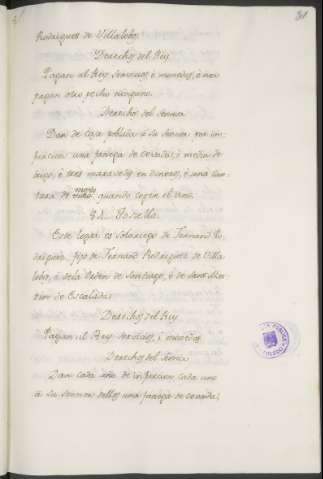 Rodrigues de Villalobo.
Derechos del Rey
Pagan al Rey servicios, é monedas, é non
pagan otro pecho ninguno.
Derechos del Sennor
Dan de casa poblada a su Sennor por in-
furcion una fanega de cevada, é media de
trigo, é tres maravedis en dineros, é una can-
tara de mosto quando cogen el vino.
Este logar es solariego de Fernand Ro-
drigues, fijo de Fernand Rodrigues de Villa-
lobo, é de la Orden de Santiago, é de Sant Mar-
tin de Escalada.
Derechos del Rey
Pagan al Rey servicios, é monedas
Derechos del Sennor
Dan cada año de infurcion cada uno
a su Sennor dellos una fanega de cevada,